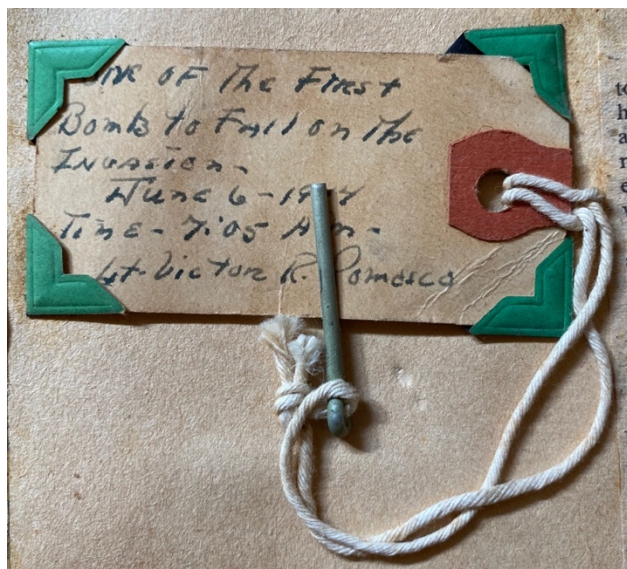 One OF The First
Bomb to Fall on The
Invasion -
June 6 - 1944
Time - 7:05 Am -
Lt. Victor R.